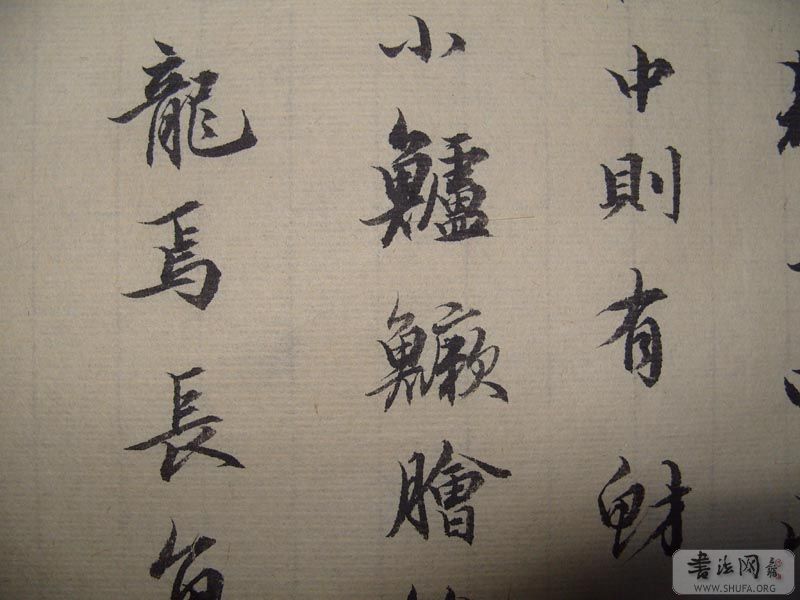 中則有
小鱸鱖膾
龍焉長
書法网
WWW.SHUFA.ORG